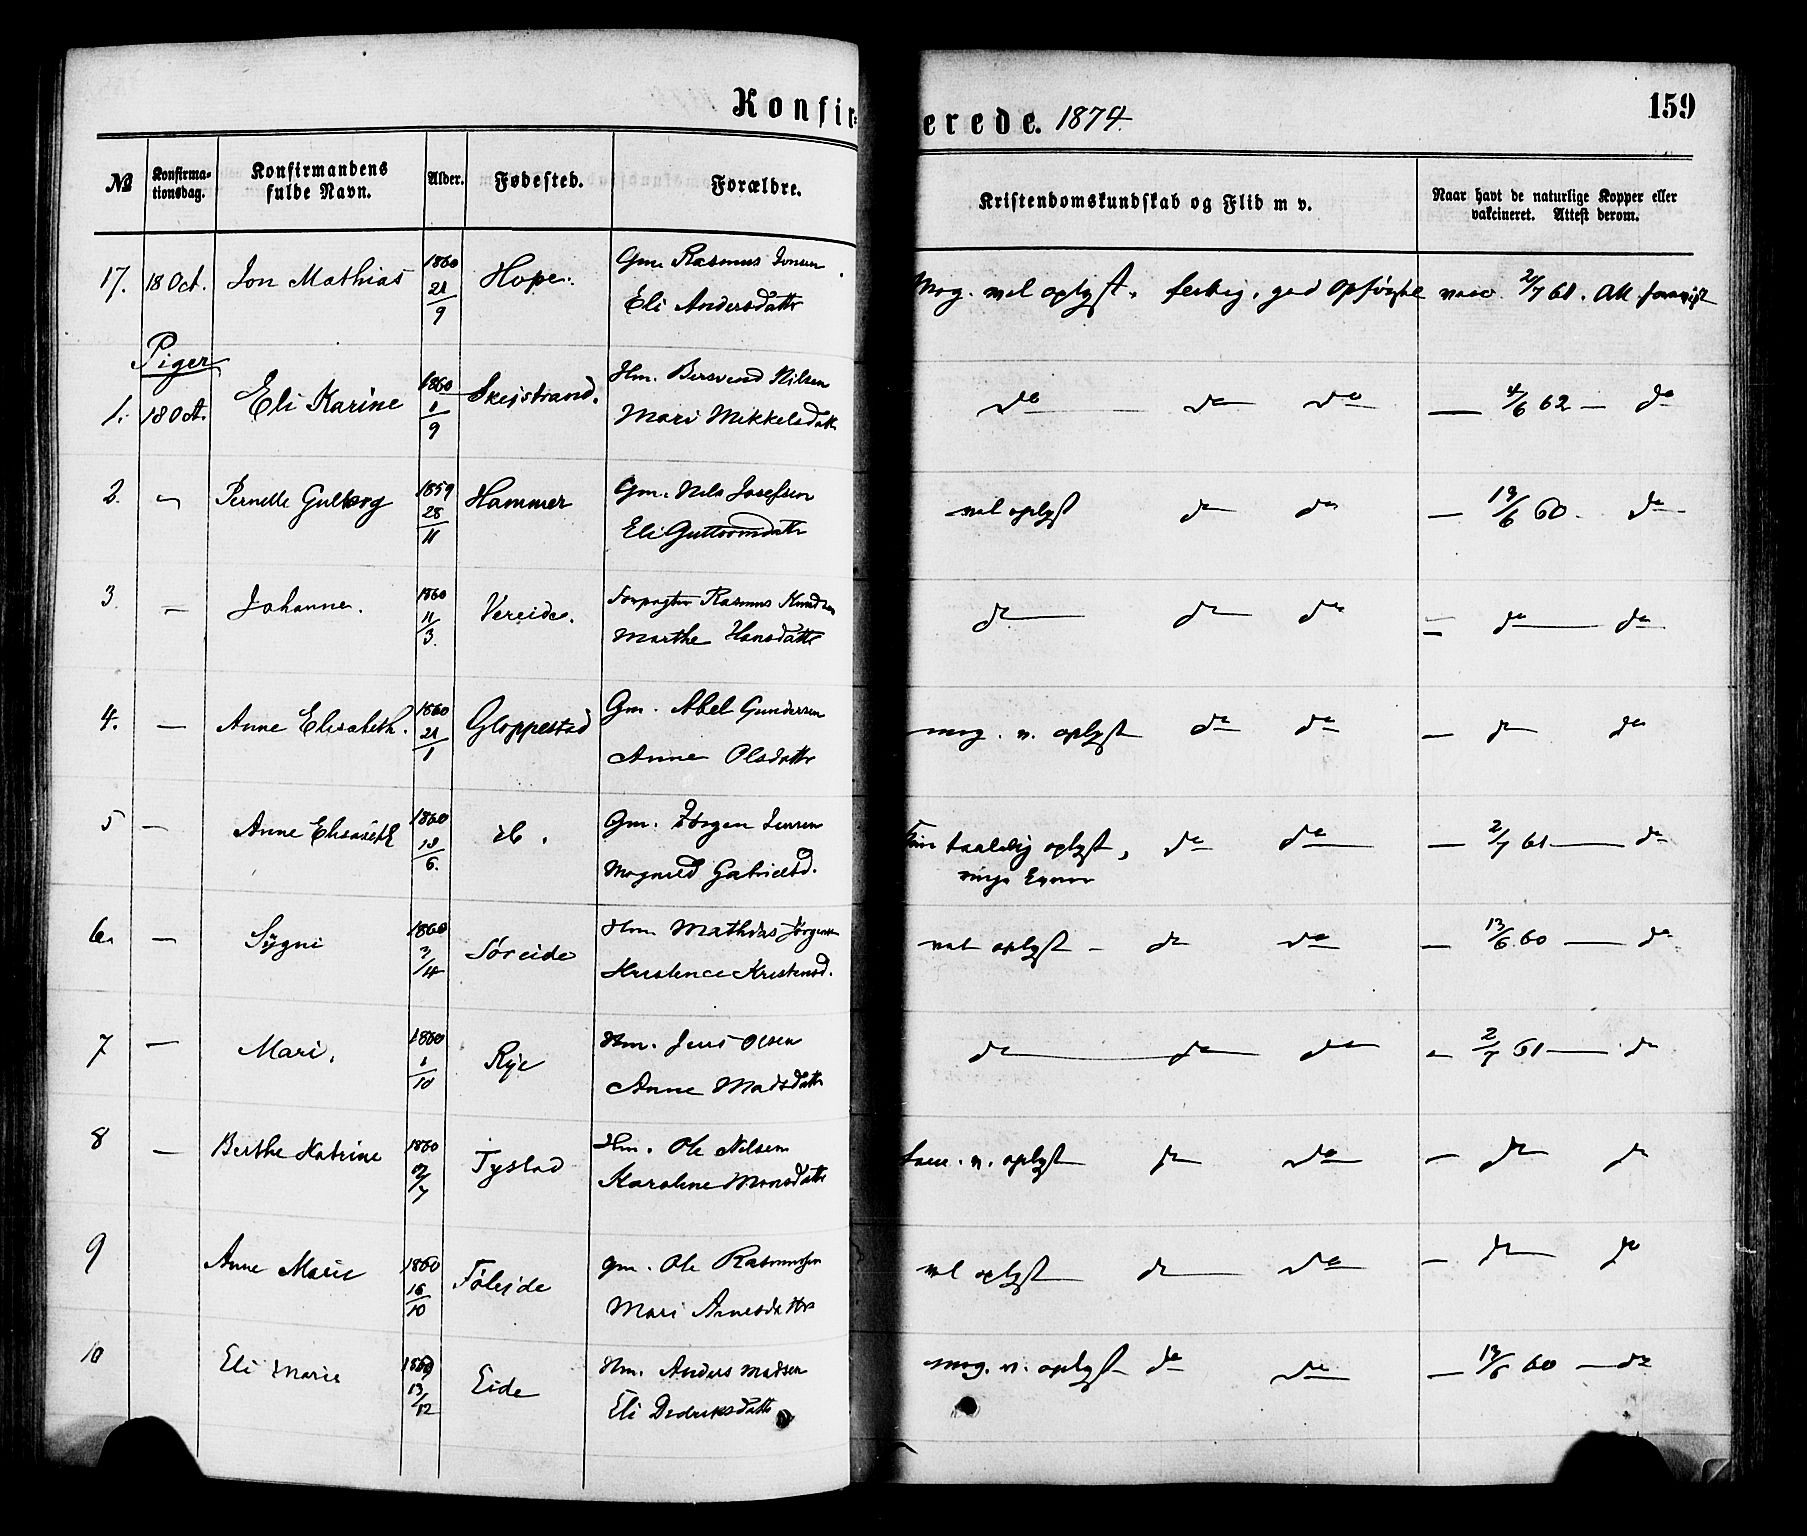 Konfirmerede. 1874. 159
№ Konfirmationsdag. Konfirmandens fulde Navn. Alder. Fødested. Forældre. Kristendomskundskab og Flid m v. Naar havt de naturlige Kopper eller vakcineret. Attest derom.
17. 18 Oct. Jon Mathias 1860 21/9 Hope. Gm. Rasmus Jonsen
Eli Andersdattr
Mog. vel oplyst, god Opførsel vacc. 2/7 61. Att.
Piger
1. 18 Oct. Eli Karine 1860 1/9 Skeistrand. Hm. Bersvend Nilsen
Mari Mikkelsdattr
do do do — 4/6 62 — do
2. Pernelle Gulborg 1859 28/11 Hammer Gm. Nils Josefsen
Eli Guttormdattr
vel oplyst do do — 13/6 60. do
3. — Johanne. 1860 11/3. Vereide. Forpagter Rasmus Knudsen
Marthe Hansdattr
do do do — do — do
4. — Anne Elisabeth. 1860 21/1 Gloppestad Gm. Abel Gundersen
Anne Olsdattr
mog. v. oplyst do do — do do
5 — Anne Elisabeth 1860 18/6. Gm. Jørgen Jensen
Magnild Gabrielsd.
taalelig oplyst, do do — 2/7 61 — do
6. — Sygni 1860 3/4 Søreide Hm Mathias Jørgensen
Kristence Kristensd.
vel oplyst — do do — 13/6 60 — do
7 — Mari. 1860 1/10 Rye Hm. Jens Olsen
Anne Madsdattr
do do do — 2/7 61 — do
8 — Berthe Katrine 1860 Tystad Hm. Ole Nilsen
Karoline Monsdattr
v. oplyst do do — do do
9 Anne Marie 1860 16/10 Føleide Gm. Ole Rasmussen
Mari Arnesdattr
vel oplyst do do — do do
10 Eli Marie 13/12 Eide Hm. Anders Madsen
Eli Dedriksdattr
mog. v. oplyst do do — 13/6 60 — do